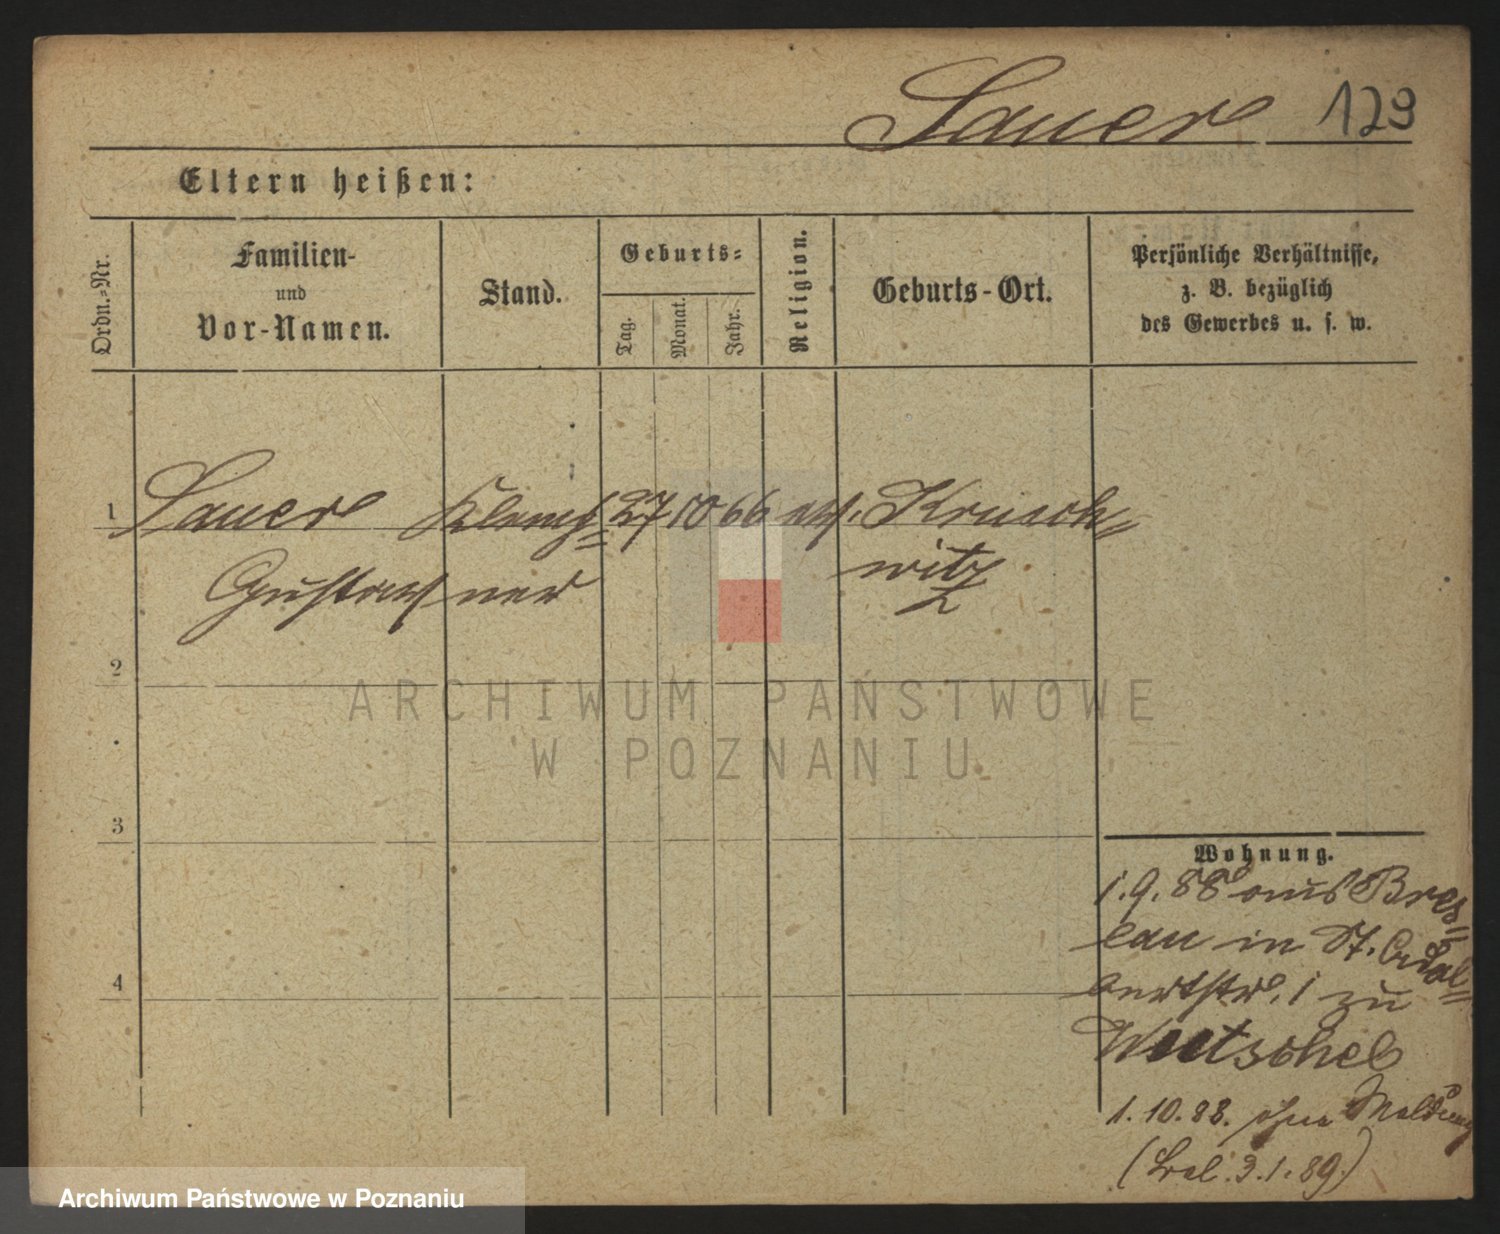 Sauer 129
Eltern heißen:
Ordn.-Nr.
Familien-
und
Vor-Namen.
Stand.
Geburts-
Tag.
Monat.
Jahr.
Religion.
Geburts-Ort.
Persönliche Verhältnisse,
z. B. bezüglich
des Gewerbes u. s. w.
1 Sauer Klemp= 27 10 66 ev. Krusch=
Gustav ner witz
2
3
4
Wohnung.
1.9.88 aus Bres=
lau in St. Adal=
bertstr. 1 zu
1.10.88. ohne Meldung
3.1.89)
ARCHIWUM PAŃSTWOWE
W POZNANIU
Archiwum Państwowe w Poznaniu